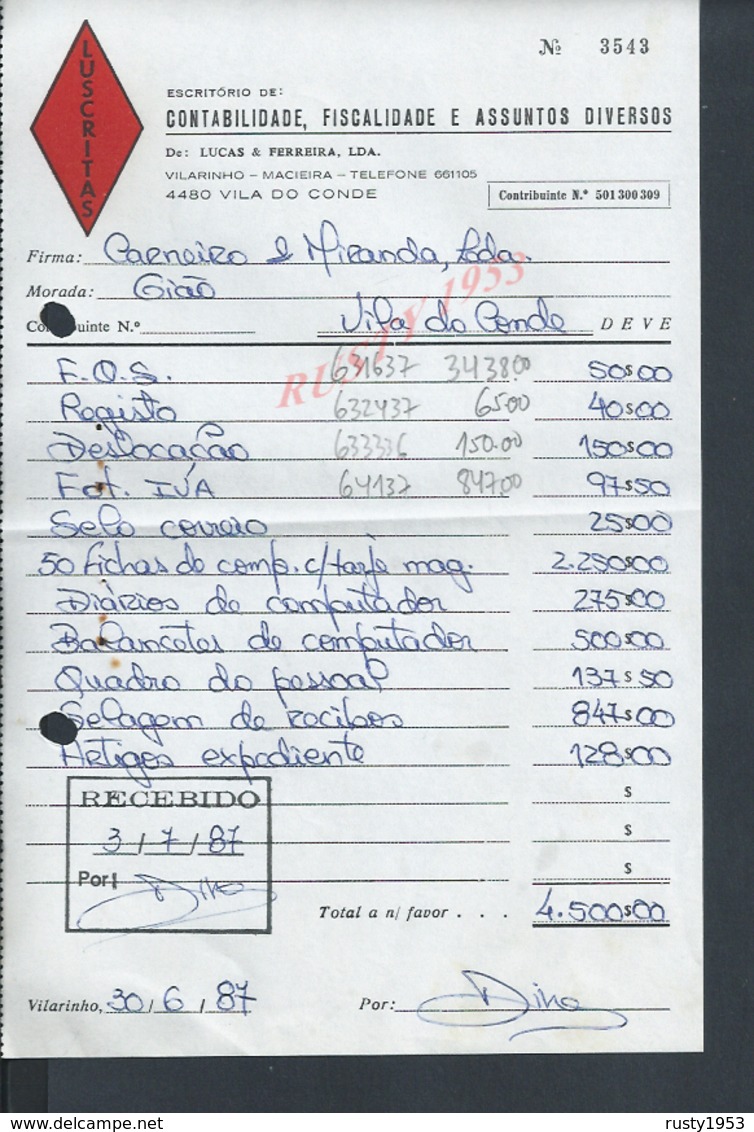 LUSCRITAS
Nº 3543
ESCRITÓRIO DE:
CONTABILIDADE, FISCALIDADE E ASSUNTOS DIVERSOS
De: LUCAS & FERREIRA, LDA.
VILARINHO - MACIEIRA - TELEFONE 661105
4480 VILA DO CONDE
Contribuinte N.º 501300309
Firma: Carneiro & Miranda, Lda.
Morada: Gião
Co uinte N.º Vila do Conde DEVE
RUSTY 1953
F.O.S. 631637 3438.00 50$00
Registo 632437 65.00 40$00
Deslocação 633336 150.00 150$00
Fot. IVA 64137 847.00 97$50
Selo correio 25$00
50 fichas de comp. c/ tarje mag. 2.250$00
Diários de computador 275$00
Balancetes de computador 500$00
Quadro do pessoal 137$50
Selagem de recibos 847$00
Artigos expediente 128$00
$
$
$
RECEBIDO
3/7/87
Por: Dina
Total a n/ favor . . . 4.500$00
Vilarinho, 30/6/87 Por: Dina
delcampe.net
rusty1953